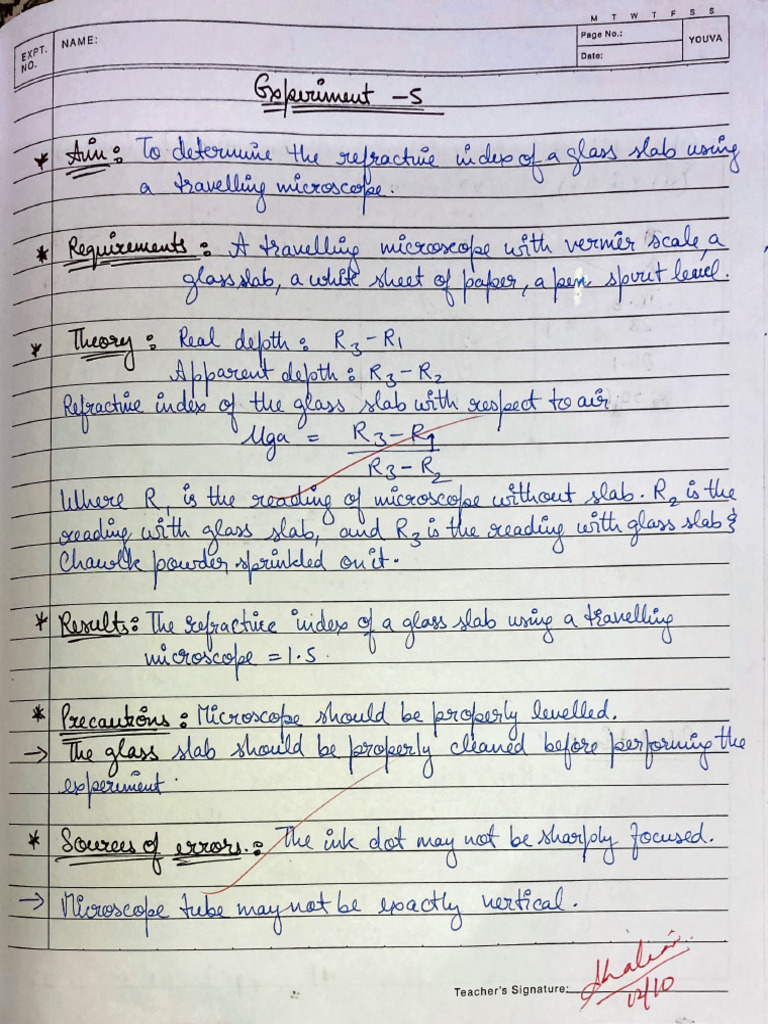 M T W T F S S
EXPT. NO.
NAME:
Page No.:
Date:
YOUVA
Experiment -5
* Aim: To determine the refractive index of a glass slab using
a travelling microscope.
* Requirements: A travelling microscope with vernier scale, a
glass slab, a white sheet of paper, a pen spirit level.
* Theory: Real depth: R3-R1
Apparent depth: R3-R2
Refractive index of the glass slab with respect to air
μga = R3-R1
R3-R2
Where R1 is the reading of microscope without slab. R2 is the
reading with glass slab, and R3 is the reading with glass slab &
Chawlk powder sprinkled on it.
* Results: The refractive index of a glass slab using a travelling
microscope = 1.5.
* Precautions: Microscope should be properly levelled.
→ The glass slab should be properly cleaned before performing the
experiment.
* Sources of errors.: The ink dot may not be sharply focused.
→ Microscope tube may not be exactly vertical.
Teacher's Signature:
12/10